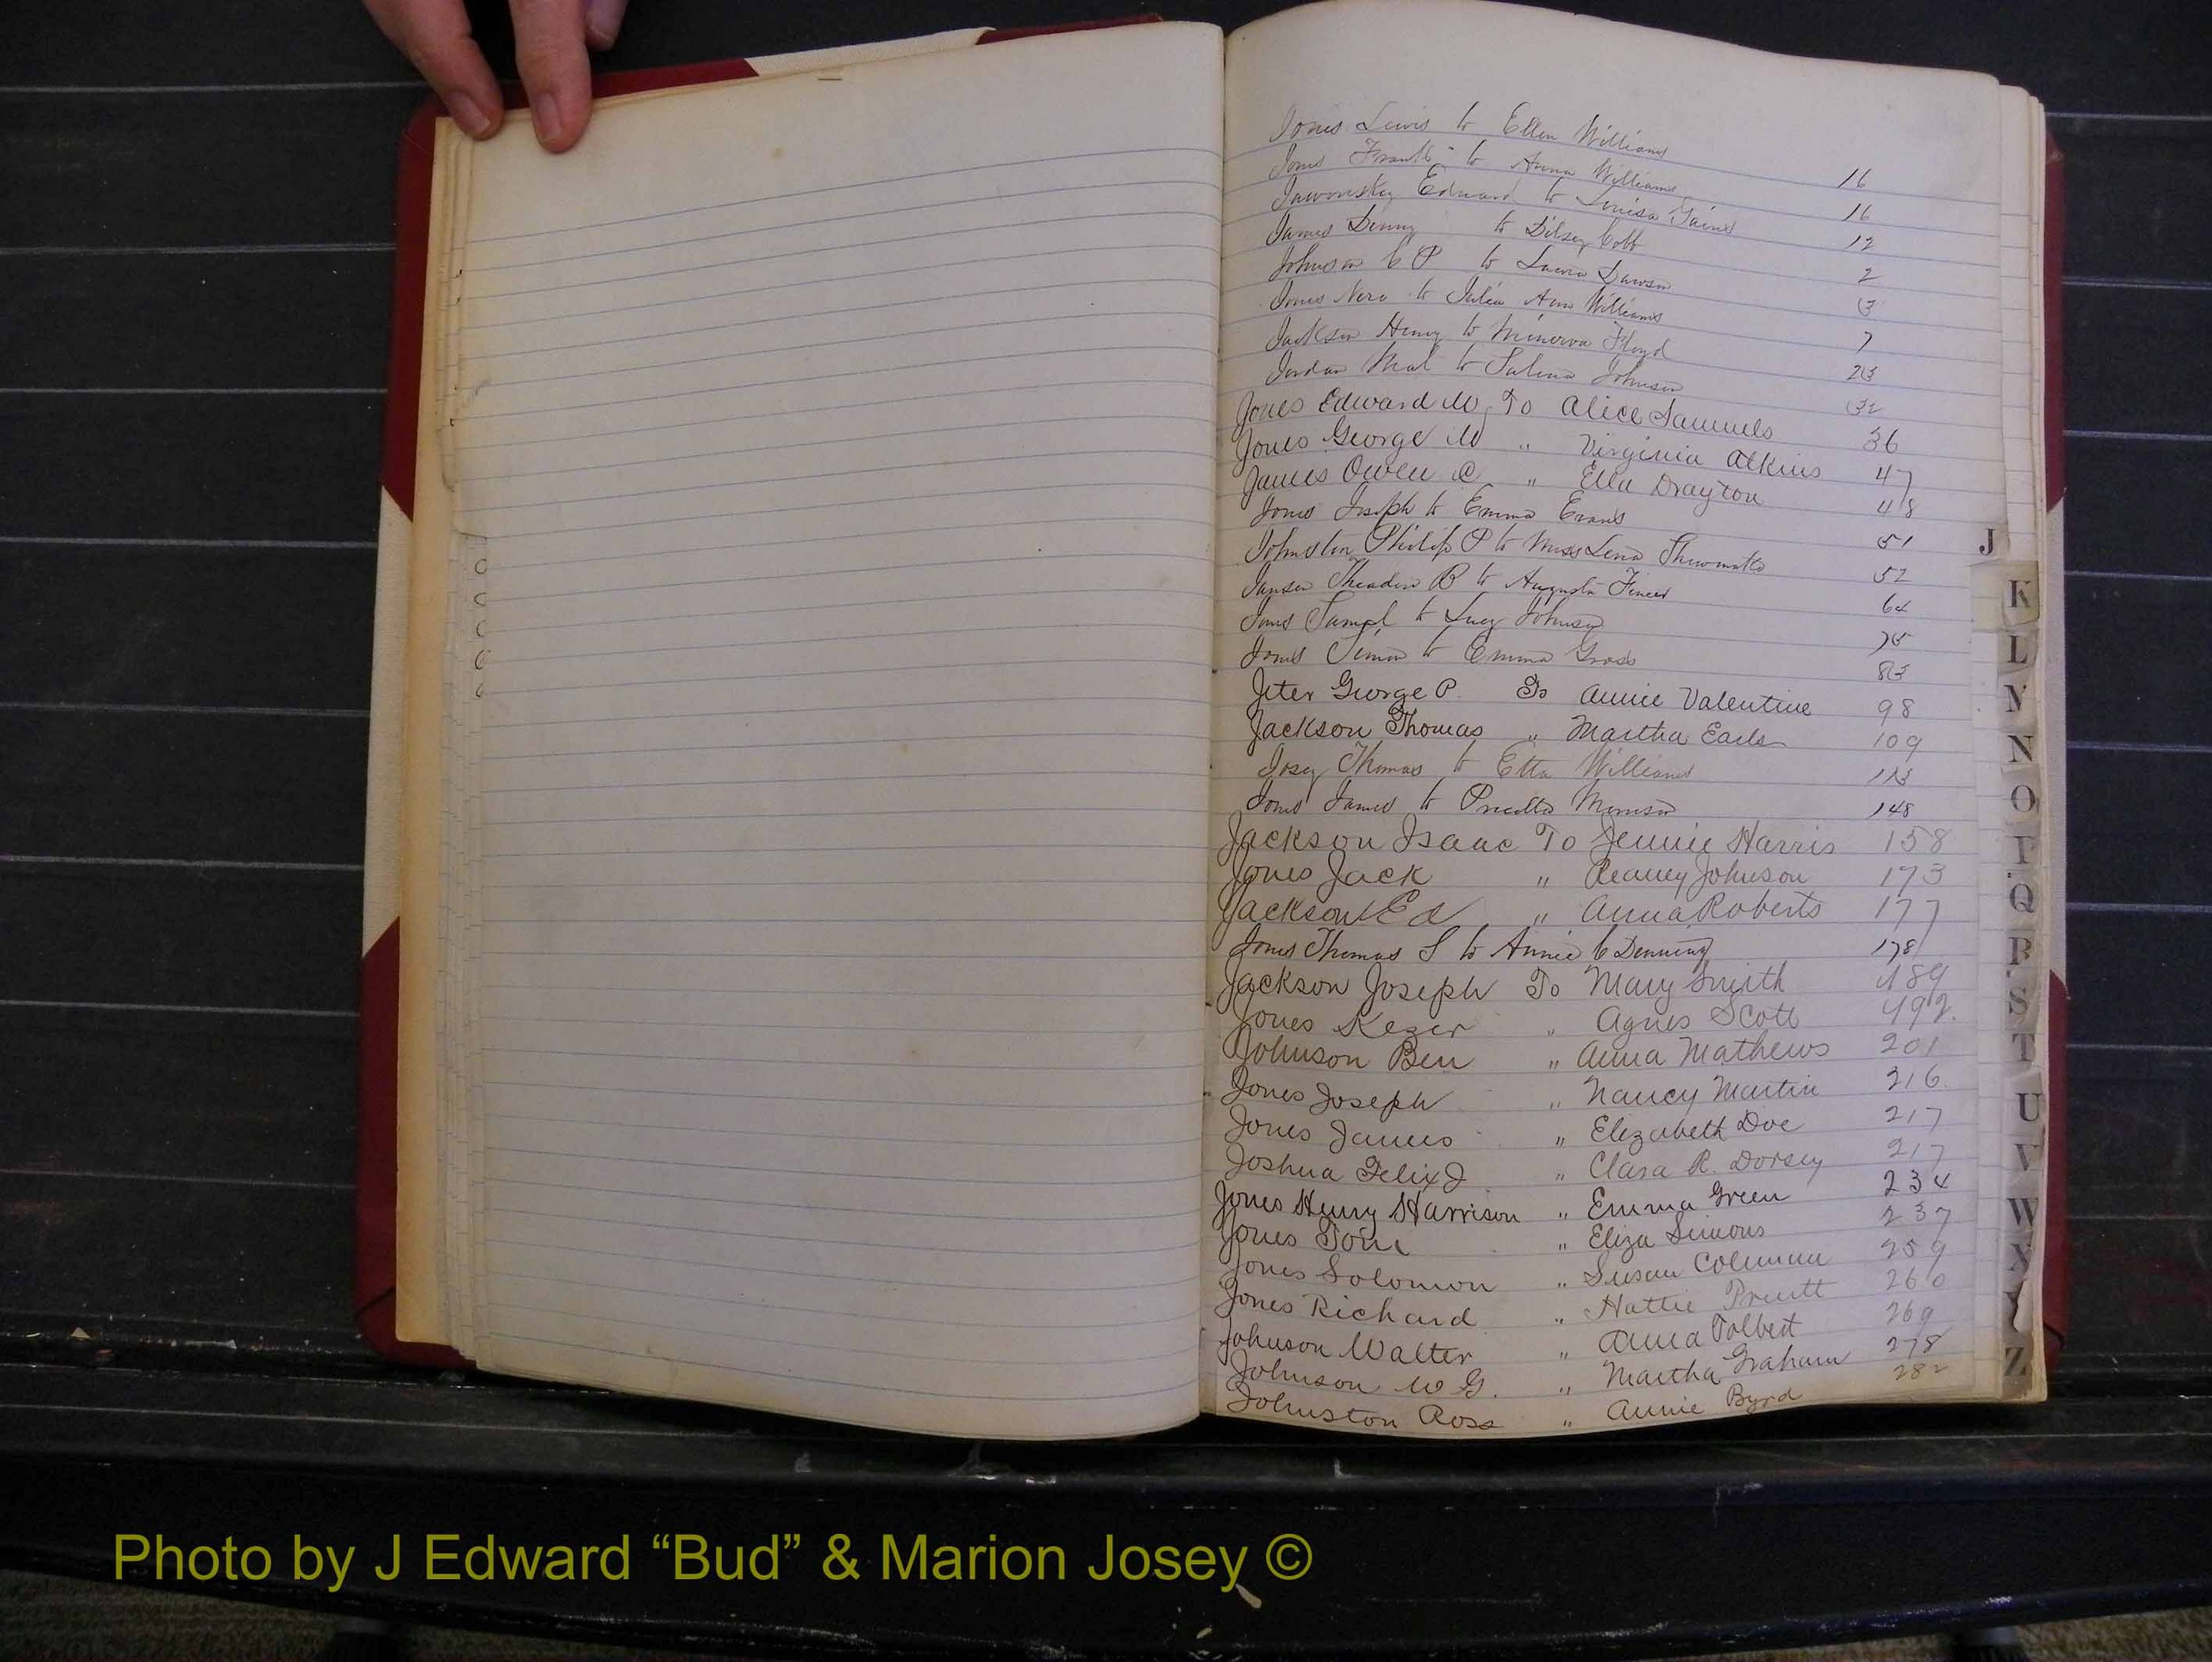 Jones Lewis to Ellen Williams 16
Jones Frank to Anna Williams 16
Edward to Louisa Gaines 12
James Denny to Dilsey Cobb 2
Johnson C P to Laura Dawson 3
Jones Nero to Julia Ann Williams 7
Jackson Henry to Minerva Floyd 23
Jordan to Salena Johnson 32
Jones Edward W To Alice Samuels 36
Jones George W " Virginia Atkins 47
James Owen C " Ella Drayton 48
Jones Joseph to Emma Evans 51
Johnston Philip P to Miss Lena 52
Theadore B to Augusta 64
Jones Saml to Lucy Johnson 75
Jones Simon to Emma Gross 83
Jeter George P. To Annie Valentine 98
Jackson Thomas " Martha Earls 109
Josey Thomas to Etta Williams 113
Jones James to 148
Jackson Isaac To Jennie Harris 158
Jones Jack " Reaney Johnson 173
Jackson Ed " Anna Roberts 177
Jones Thomas S to Annie C Denning 178
Jackson Joseph To Mary Smith 189
Jones Kezer " Agnes Scott 192.
Johnson Ben " Anna Mathews 201
Jones Joseph " Nancy Martin 216
Jones James " Elizabeth Doe 217
Joshua Felix J " Clara R. Dorsey 217
Jones Henry Harrison " Emma Green 234
Jones Tom " Eliza Simons 237
Jones Solomon " Susan Coleman 259
Jones Richard " Hattie Pruitt 260
Johnson Walter " Anna Tolbert 269
Johnson W G. " Martha Graham 278
Johnston Ross " Annie Byrd 282
J
K
L
M
N
O
P
Q
R
S
T
U
V
W
X
Y
Z
Photo by J Edward “Bud” & Marion Josey ©